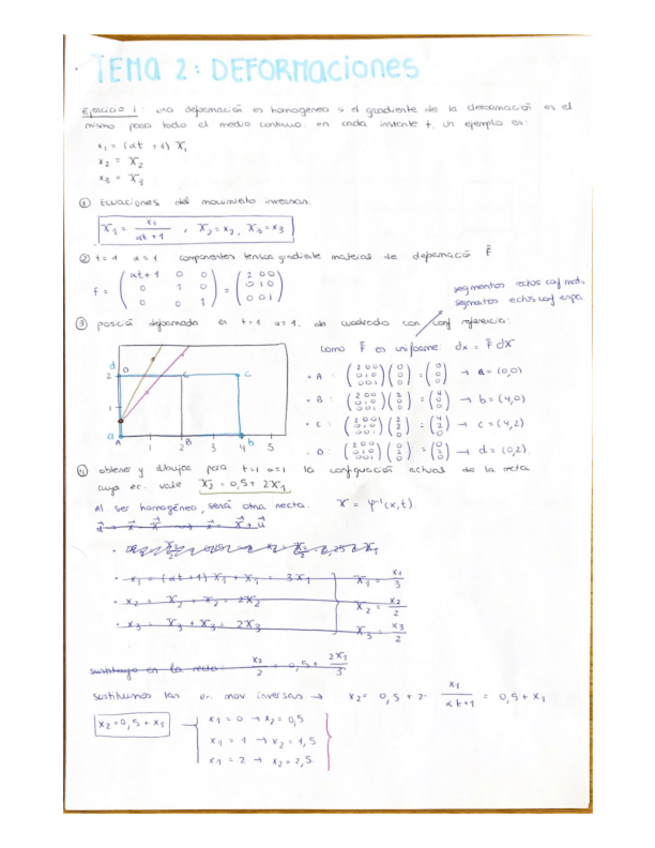 TEMA 2: DEFORMaciones
Ejercicio 1: una deformación es homogénea si el gradiente de la deformación es el
mismo para todo el medio continuo en cada instante t. un ejemplo es:
x₁ = (αt + 1) X₁
x₂ = X₂
x₃ = X₃
① Ecuaciones del movimiento inversas.
X₁ = x₁/(αt + 1) , X₂ = x₂, X₃ = x₃
② t=1 α=1 componentes tensor gradiente material de deformació F̄
F = (αt+1 0 0; 0 1 0; 0 0 1) = (2 0 0; 0 1 0; 0 0 1)
segmentos rectos conf mat.
segmentos rectos conf espa.
③ posición deformada en t=1 α=1, de cuadrado con conf referencia:
como F̄ es uniforme: dx = F̄ dX
· A : (2 0 0; 0 1 0; 0 0 1)(0; 0; 0) = (0; 0; 0) → a = (0,0)
· B : (2 0 0; 0 1 0; 0 0 1)(2; 0; 0) = (4; 0; 0) → b = (4,0)
· C : (2 0 0; 0 1 0; 0 0 1)(2; 2; 0) = (4; 2; 0) → c = (4,2)
· D : (2 0 0; 0 1 0; 0 0 1)(0; 2; 0) = (0; 2; 0) → d = (0,2).
d D C c
2
1
a A 1 2 B 3 4 b 5
④ obtener y dibujar para t=1 α=1 la configuración actual de la recta
cuya ec. vale X₂ = 0,5 + 2X₁
Al ser homogéneo, será otra recta. X = φ⁻¹(x,t).
x₁ = (αt+1) X₁ + X₁ = 3X₁ X₁ = x₁/3
x₂ = X₂ + X₂ = 2X₂ X₂ = x₂/2
x₃ = X₃ + X₃ = 2X₃ X₃ = x₃/2
sustituyo en la recta: x₂/2 = 0,5 + 2X₁/3
sustituimos las ec. mov inversas → x₂ = 0,5 + 2· x₁/(αt+1) = 0,5 + x₁
x₂ = 0,5 + x₁
x₁ = 0 → x₂ = 0,5
x₁ = 1 → x₂ = 1,5
x₁ = 2 → x₂ = 2,5